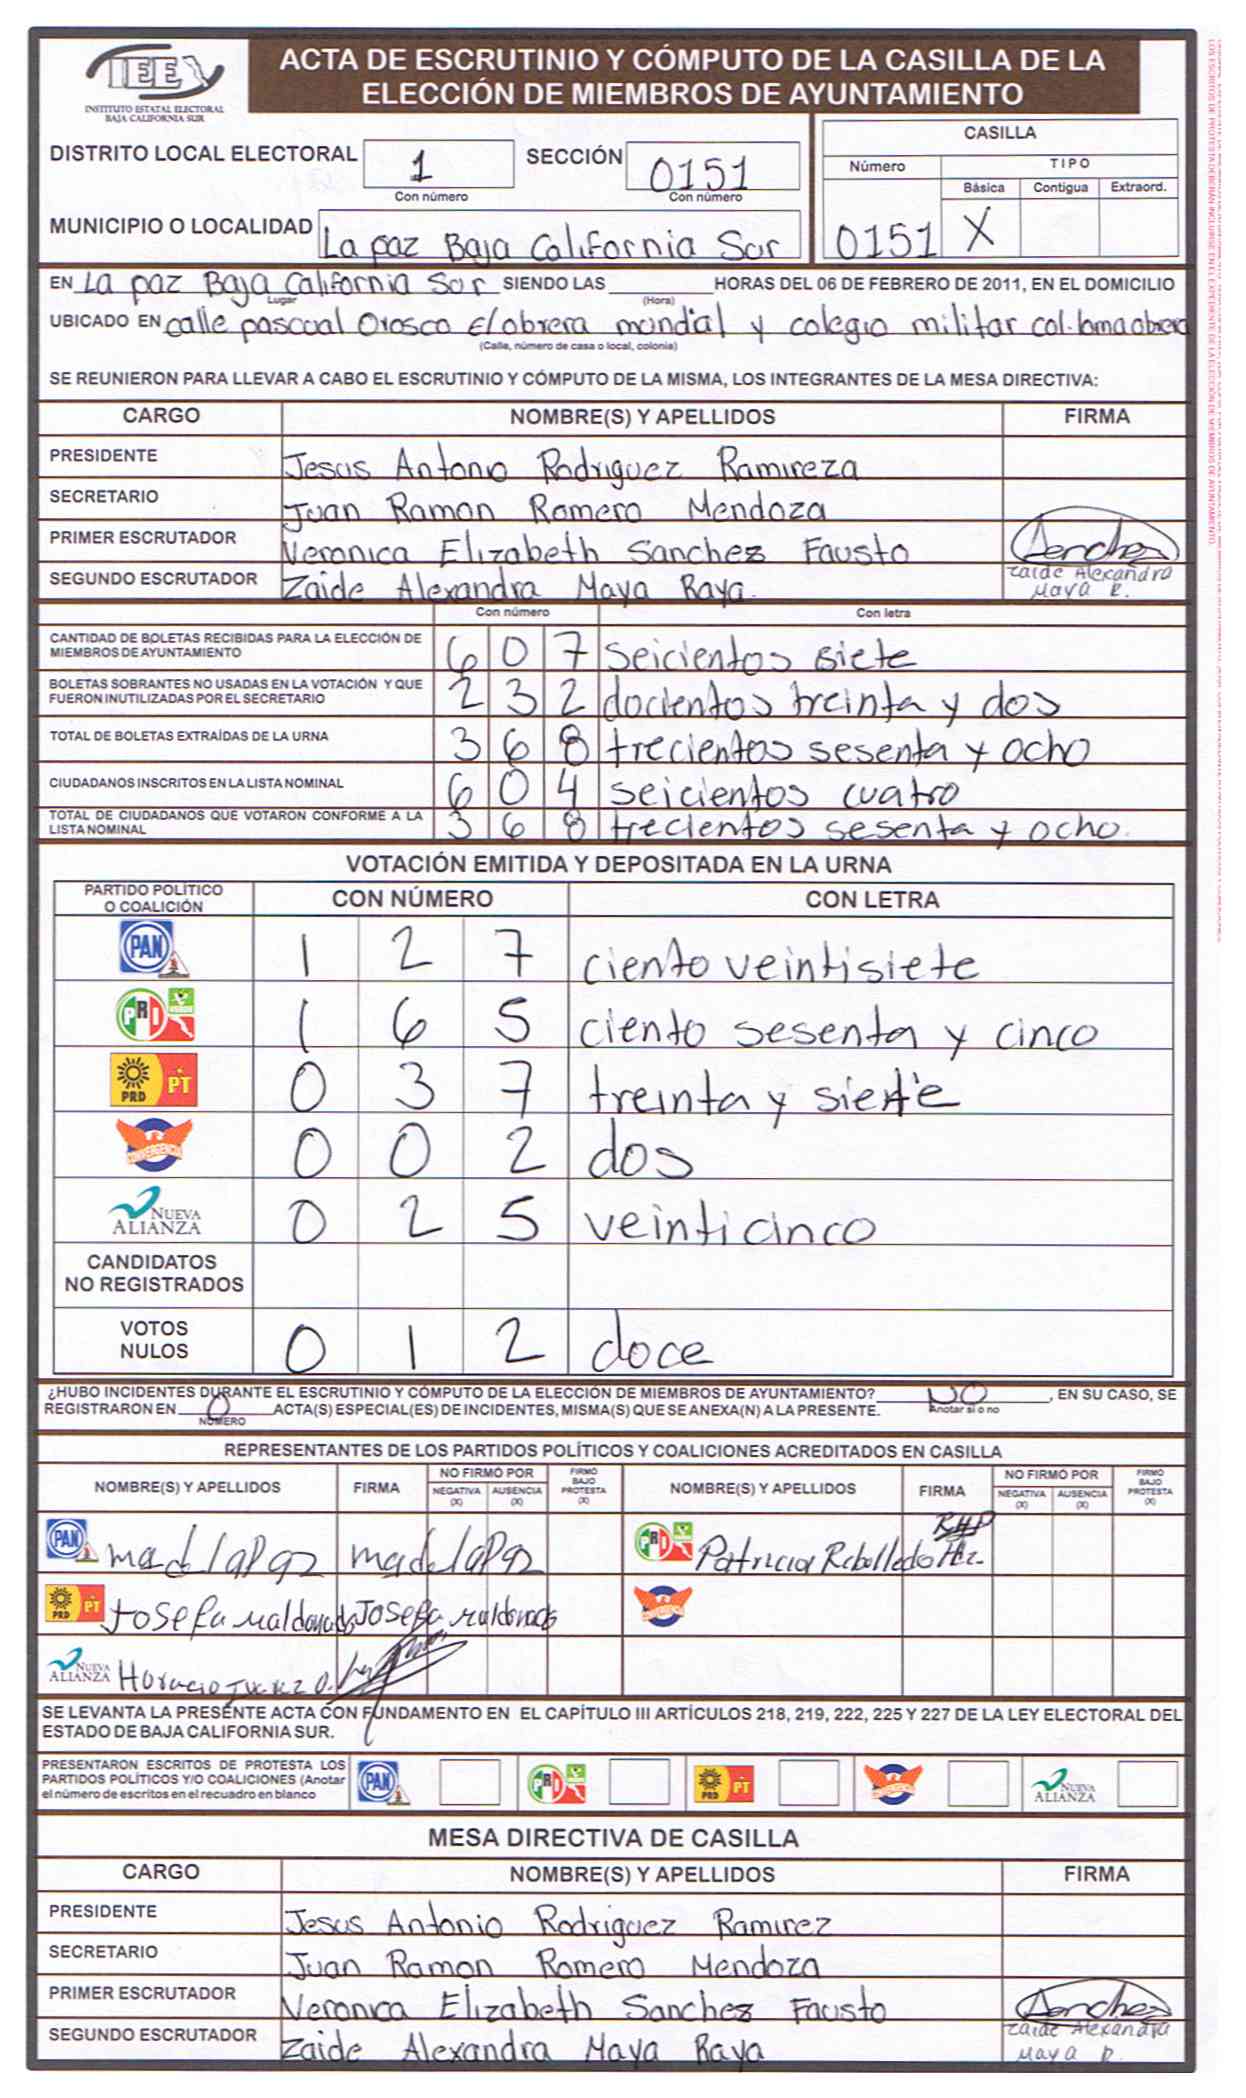 IEE
INSTITUTO ESTATAL ELECTORAL
BAJA CALIFORNIA SUR
ACTA DE ESCRUTINIO Y CÓMPUTO DE LA CASILLA DE LA
ELECCIÓN DE MIEMBROS DE AYUNTAMIENTO
DISTRITO LOCAL ELECTORAL 1 SECCIÓN 0151
Con número Con número
MUNICIPIO O LOCALIDAD La paz Baja California Sur
CASILLA
Número TIPO
Básica Contigua Extraord.
0151 X
EN La paz Baja California Sur SIENDO LAS HORAS DEL 06 DE FEBRERO DE 2011, EN EL DOMICILIO
Lugar (Hora)
UBICADO EN calle pascual Orosco E/obrera mundial y colegio militar col. loma obrera
(Calle, número de casa o local, colonia)
SE REUNIERON PARA LLEVAR A CABO EL ESCRUTINIO Y CÓMPUTO DE LA MISMA, LOS INTEGRANTES DE LA MESA DIRECTIVA:
CARGO NOMBRE(S) Y APELLIDOS FIRMA
PRESIDENTE Jesus Antonio Rodriguez Ramireza
SECRETARIO Juan Ramon Romero Mendoza
PRIMER ESCRUTADOR Veronica Elizabeth Sanchez Fausto Sanchez
SEGUNDO ESCRUTADOR Zaide Alexandra Maya Raya. Zaide Alexandra
Maya R.
Con número Con letra
CANTIDAD DE BOLETAS RECIBIDAS PARA LA ELECCIÓN DE
MIEMBROS DE AYUNTAMIENTO 6 0 7 seicientos siete
BOLETAS SOBRANTES NO USADAS EN LA VOTACIÓN Y QUE
FUERON INUTILIZADAS POR EL SECRETARIO 2 3 2 docientos treinta y dos
TOTAL DE BOLETAS EXTRAÍDAS DE LA URNA 3 6 8 trecientos sesenta y ocho
CIUDADANOS INSCRITOS EN LA LISTA NOMINAL 6 0 4 seicientos cuatro
TOTAL DE CIUDADANOS QUE VOTARON CONFORME A LA
LISTA NOMINAL 3 6 8 trecientos sesenta y ocho.
VOTACIÓN EMITIDA Y DEPOSITADA EN LA URNA
PARTIDO POLÍTICO
O COALICIÓN CON NÚMERO CON LETRA
PAN 1 2 7 ciento veintisiete
PRI 1 6 5 ciento sesenta y cinco
PRD PT 0 3 7 treinta y siete
CONVERGENCIA 0 0 2 dos
NUEVA ALIANZA 0 2 5 veinticinco
CANDIDATOS
NO REGISTRADOS
VOTOS
NULOS 0 1 2 doce
¿HUBO INCIDENTES DURANTE EL ESCRUTINIO Y CÓMPUTO DE LA ELECCIÓN DE MIEMBROS DE AYUNTAMIENTO? NO , EN SU CASO, SE
REGISTRARON EN 0 ACTA(S) ESPECIAL(ES) DE INCIDENTES, MISMA(S) QUE SE ANEXA(N) A LA PRESENTE. Anotar si o no
NÚMERO
REPRESENTANTES DE LOS PARTIDOS POLÍTICOS Y COALICIONES ACREDITADOS EN CASILLA
NOMBRE(S) Y APELLIDOS FIRMA NO FIRMÓ POR NEGATIVA (X) AUSENCIA (X) FIRMÓ BAJO PROTESTA (X) NOMBRE(S) Y APELLIDOS FIRMA NO FIRMÓ POR NEGATIVA (X) AUSENCIA (X) FIRMÓ BAJO PROTESTA (X)
PAN ma de la Paz ma de la Paz PRI Patricia Rebolledo Hz. RHP
PRD PT Josefa Maldonado Josefa Maldonado CONVERGENCIA
NUEVA ALIANZA Horacio Juarez O.
SE LEVANTA LA PRESENTE ACTA CON FUNDAMENTO EN EL CAPÍTULO III ARTÍCULOS 218, 219, 222, 225 Y 227 DE LA LEY ELECTORAL DEL
ESTADO DE BAJA CALIFORNIA SUR.
PRESENTARON ESCRITOS DE PROTESTA LOS
PARTIDOS POLÍTICOS Y/O COALICIONES (Anotar
el número de escritos en el recuadro en blanco
PAN PRI PRD PT CONVERGENCIA NUEVA ALIANZA
MESA DIRECTIVA DE CASILLA
CARGO NOMBRE(S) Y APELLIDOS FIRMA
PRESIDENTE Jesus Antonio Rodriguez Ramirez
SECRETARIO Juan Ramon Romero Mendoza
PRIMER ESCRUTADOR Veronica Elizabeth Sanchez Fausto Sanchez
SEGUNDO ESCRUTADOR Zaide Alexandra Maya Raya Zaide Alexandra
Maya R.